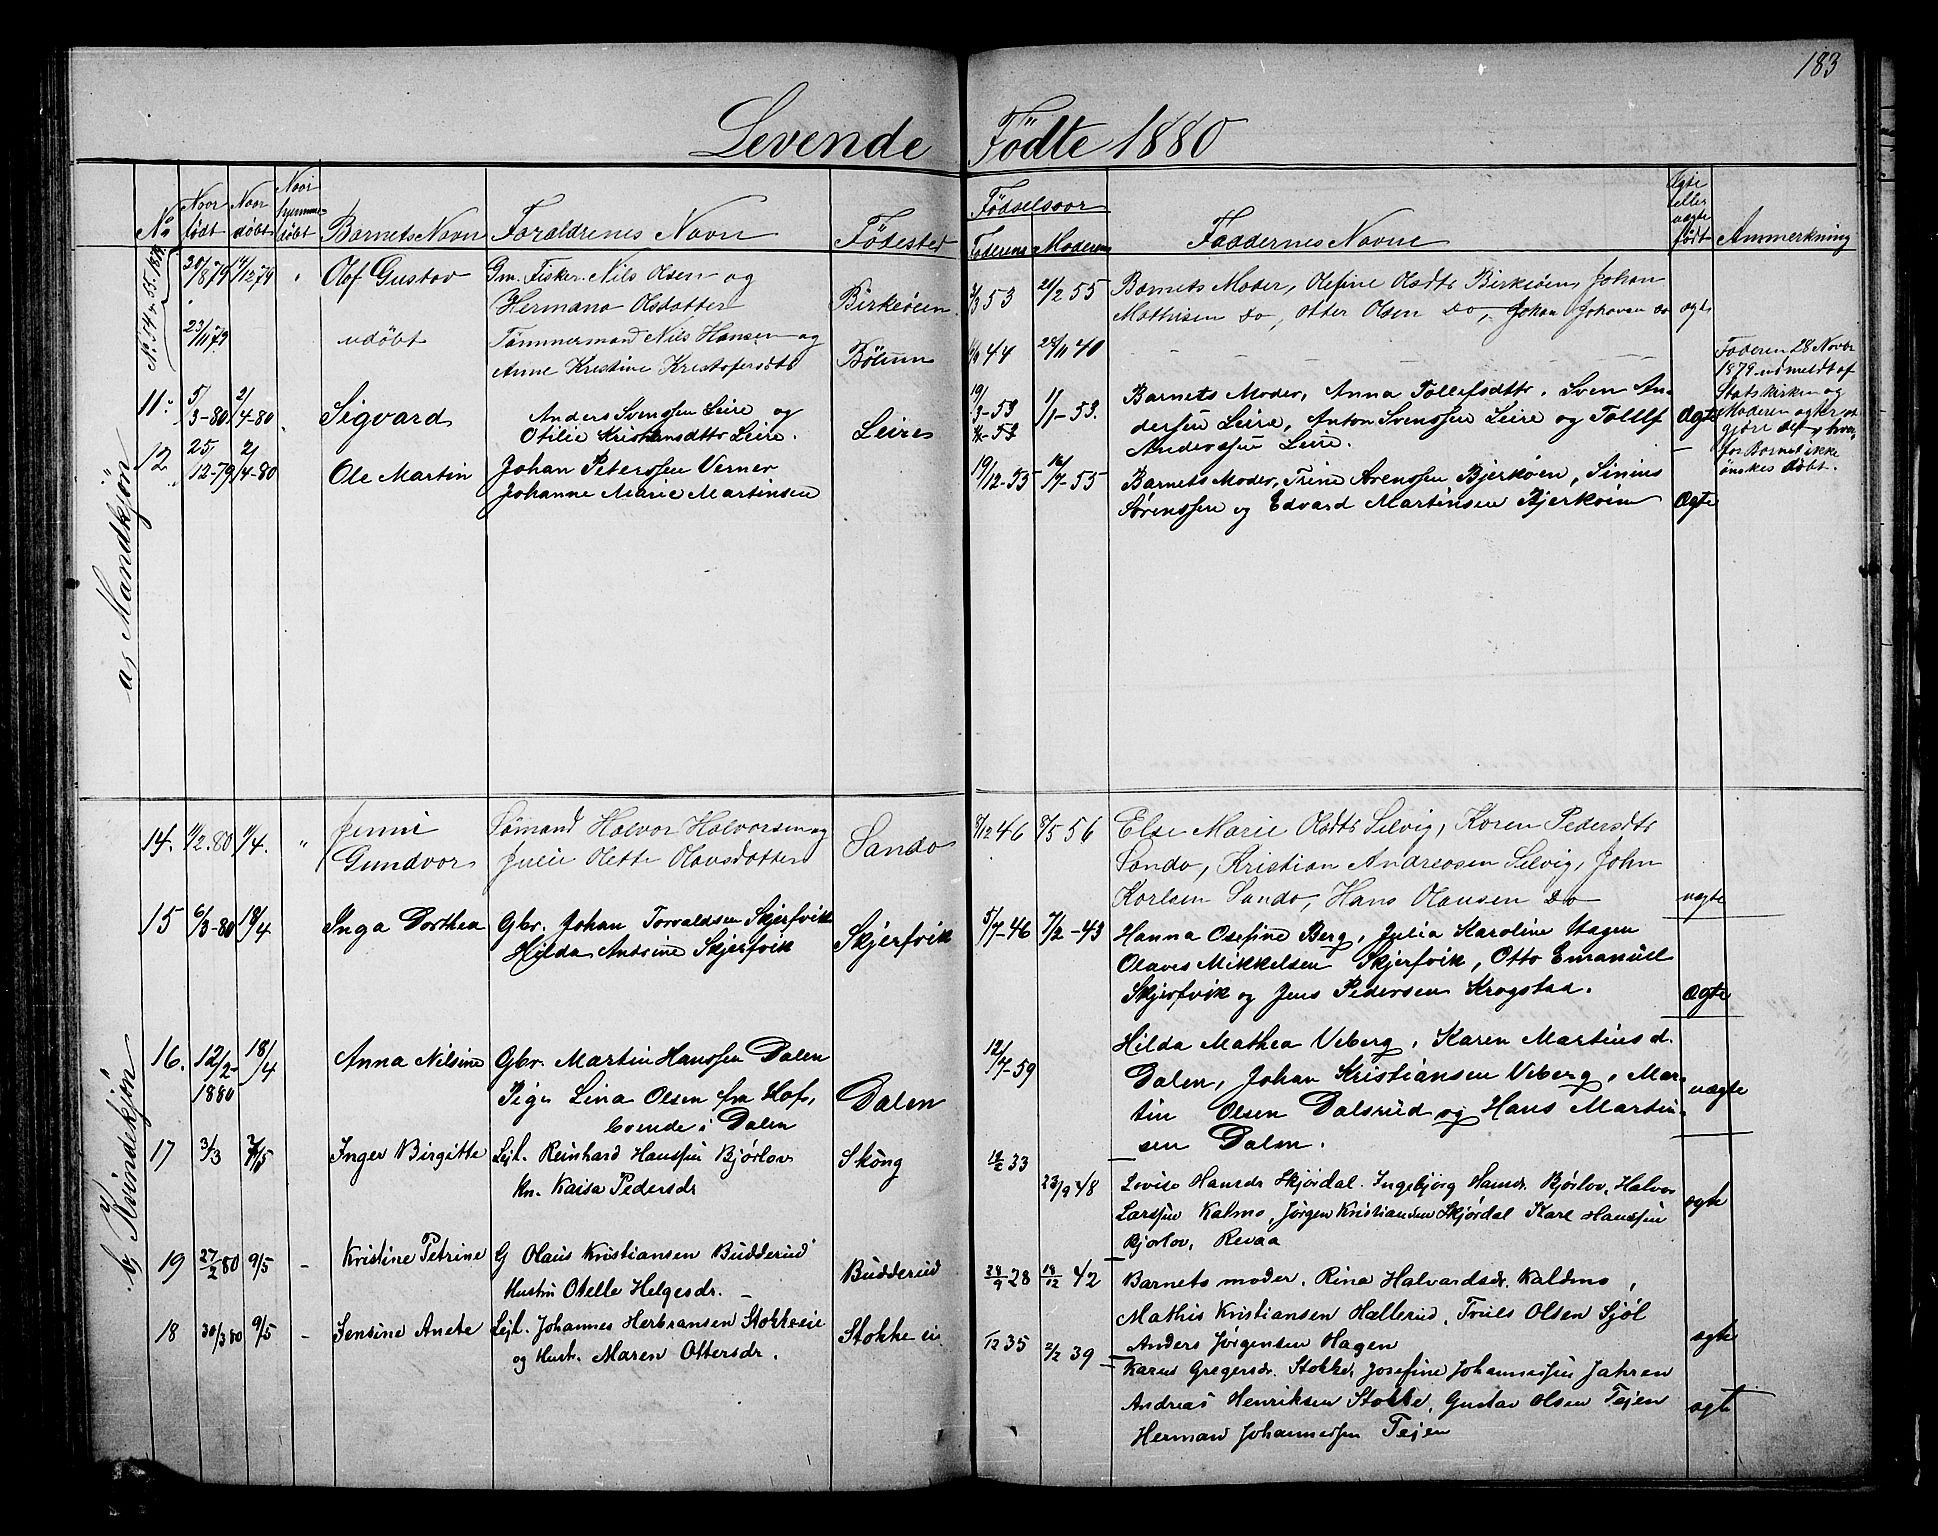 183
Levende Födte 1880
No
Naar født
Naar döbt
Naar hjemmedöbt
Barnets Navn
Foraldrenes Navn
Födested
Födselsaar
Faderens
Moderens
Faddernes Navne
Ægte eller uægte født
Anmerkning
a, Mandkjön
No 54 & 55. 1879
20/8 79 14/12 79 " Olof Gustav Gm. Fisker Nils Olsen og
Hermana Olsdatter Birkeöen
53 21/2 55 Barnets Moder, Olefine Olsdtr Birkeöen, Johan
Mathisen Do, Otter Olsen Do, Johan Johansen Do ægte
23/11 79 udöbt Tömmermand Nils Hansen og
Anne Kristine Kristofersdtr Bölum
44 28/11 40
Faderen 28 Novbr
1879 udmeldt af
Statskirken og
Moderen agter at
gjöre det, hvor-
for Barnet ikke
önskes döbt.
11. 5/3-80 2/4-80 Sigvard Anders Svenssen Leire og
Otilie Kristiansdttr Leire. Leire
19/3-53 1/1-53. Barnets Moder, Anna Tollefsdttr. Sven An-
dersen Leire, Anton Svenssen Leire og Tollef
Anderssen Leire. Ægte
12 25/12-79 2/4-80 Ole Martin Johan Peterssen Verner
Johanne Marie Martinsen
19/12-53 16/7-55 Barnets Moder, Trine Sörenssen Bjerköen, Sinius
Sörenssen og Edvard Martinsen Bjerköen Ægte
b, Kvindekjön
14. 11/2-80 11/4. " Jenni
Gundvor Sömand Halvor Halvorsen og
Julie Olette Olavsdatter Sando
8/12 46 8/5 56 Else Marie Olsdtr Selvig, Karen Pedersdtr
Sando, Kristian Andreasen Selvig, John
Karlsen Sando, Hans Olausen Do uægte
15 6/3-80 18/4 Inga Dorthea Gbr. Johan Torvaldsen Skjerfvik
Hilda Antrine Skjerfvik Skjerfvik
5/7-46 7/2-43 Hanna Osefine Berg, Julia Karoline Hagen
Olaves Mikkelsen Skjerfvik, Otto Emanuel
Skjerfvik og Jens Pedersen Krogstad. Ægte
16. 12/2-1880 18/4 Anna Nilsine Gbr. Martin Hanssen Dalen
Pige Lina Olsen fra Hof,
boende i Dalen Dalen
12/7-59 Hilda Mathea Viberg, Karen Martiusd.
Dalen, Johan Kristiansen Viberg, Mar-
tin Olsen Dalsrud og Hans Martin-
sen Dalen. uægte
17 3/3 7/5 Inger Birgitte Lejl. Reinhard Hanssen Bjørlov
kn. Kaisa Pedersdr Skøng
33 23/9 48 Lovise Hansdr Skjørdal. Ingebjørg Hansdr. Bjørlov, Halvor
Larssen Kalmo, Jørgen Kristiansen Skjørdal Karl Hanssen
Bjørlov, Revaa ægte
19 27/2 80 9/5 - Kristine Petrine G Olaus Kristiansen Budderud
Hustru Otelle Helgesdr. Budderud
28/9 28 18/12 42 Barnets moder. Rina Halvardsdr. Kaldmo,
Mathis Kristiansen Hallerud, Truls Olsen Sjøl
Anders Jørgensen Hagen ægte
18 30/3 80 9/5 - Jensine Anete Lejl. Johannes Herbransen Stokkeeie
og Hustr. Maren Ottersdr. Stokke ei
1/12 35 2/2 39 Karen Gregersdr. Stokke, Josefine Johannessen Jahren
Andreas Henriksen Stokke, Gustav Olsen Tejen
Herman Johannessen Tejen ægte